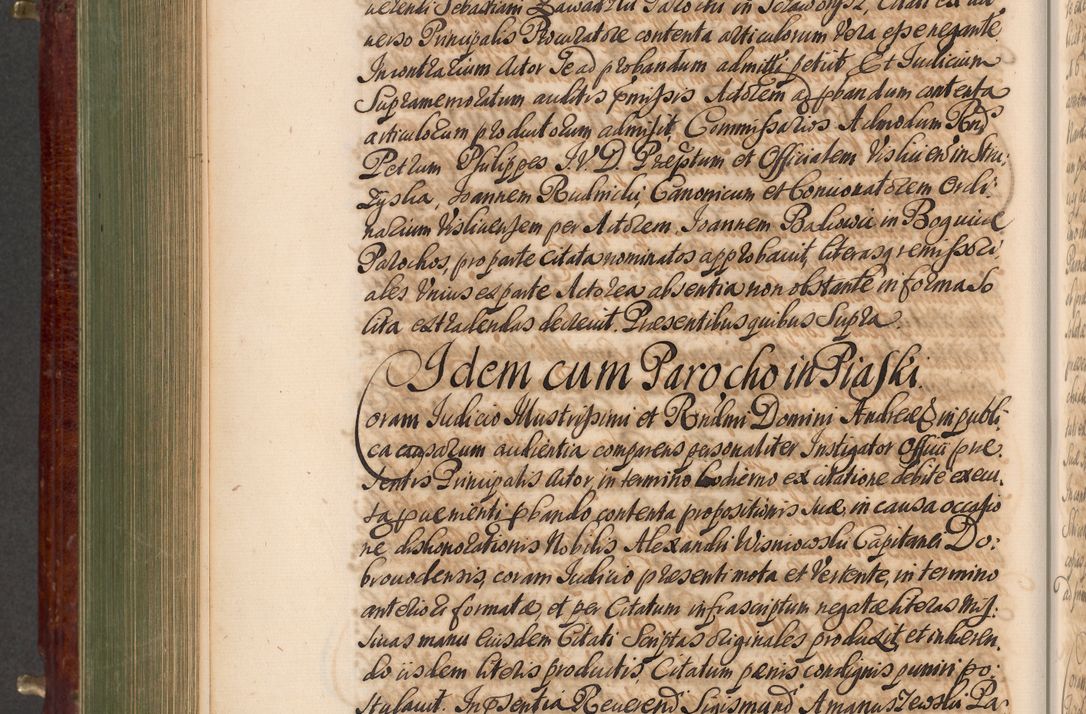 uerendi Sebastiani Zawadzki Parochi in Szzaworysz Citati ex ad
uerso Principalis Procuratore contenta articulorum Vera esse negante
In contrarium Actor se ad probandum admitti petijt Et Iudicium
Supramemoratum auditis præmissis Actorem ad pbandum contenta
articulorum productorum admisit, Commissarios Admodum Rnd
Petrum Philippes I.V.D. Præptum et Officialem Visliciensem in
Joannem Rudnicki, Canonicum et Concionatorem Ordi:
narium Visliciensem per Actorem, Joannem in
Parochos, pro parte Citata nominatos approbavit, literasq remissori
ales Unius ex parte Actorea absentia non obstante in forma So
lita extradendas decreuit. Præsentibus quibus Supra.
Idem cum Parocho in Piaski.
Coram Judicio Illustrissimi et Rndmi Domini Andreæ in publi
ca causarum audientia comparens personaliter Instigator Officii præ
sentis Principalis Actor, in termino hodierno ex citatione debite execu
ta pbando contenta propositionis suæ, in causa occasio
ne dishonorationis Nobilis Alexandri Wisniowski Capitanei Do:
brouodensis, coram Judicio præsenti mota et Vertente, in termino
anteriori formatæ, et per Citatum infrascriptum negatæ literas Mis
siuas manu eiusdem Citati Scriptas originales produxit, et inhæren
do iisdem literis productis, Citatum pœnis condignis puniri po:
stulauit. In pœsentia Reuerendi Sigismundi Pa